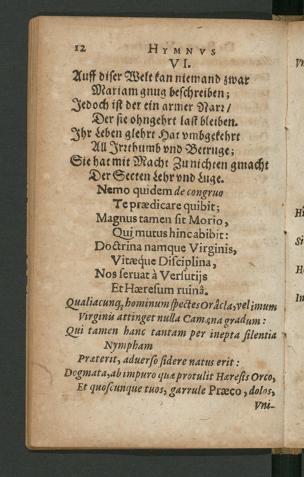 12 HYMNVS
VI.
Auff diser Welt kan niemand zwar
Mariam gnug beschreiben;
Jedoch ist der ein armer Narr/
Der sie ohngehrt last bleiben.
Ihr Leben glehrt Hat vmbgekehrt
All Irrthumb vnd Betruge;
Sie hat mit Macht Zu nichten gmacht
Der Secten Lehr vnd Luge.
Nemo quidem de congruo
Te prædicare quibit;
Magnus tamen sit Morio,
Qui mutus hinc abibit:
Doctrina namque Virginis,
Vitæque Disciplina,
Nos seruat à Versutijs
Et Hæresum ruinâ.
Qualiacunq, hominum spectes Orâcla, vel imum
Virginis attinget nulla Camœna gradum:
Qui tamen hanc tantam per inepta silentia
Nympham
Præterit, adverso sidere natus erit:
Dogmata, ab impuro quæ protulit Hæresis Orco,
Et quoscunque tuos, garrule Præco, dolos,
Vni-